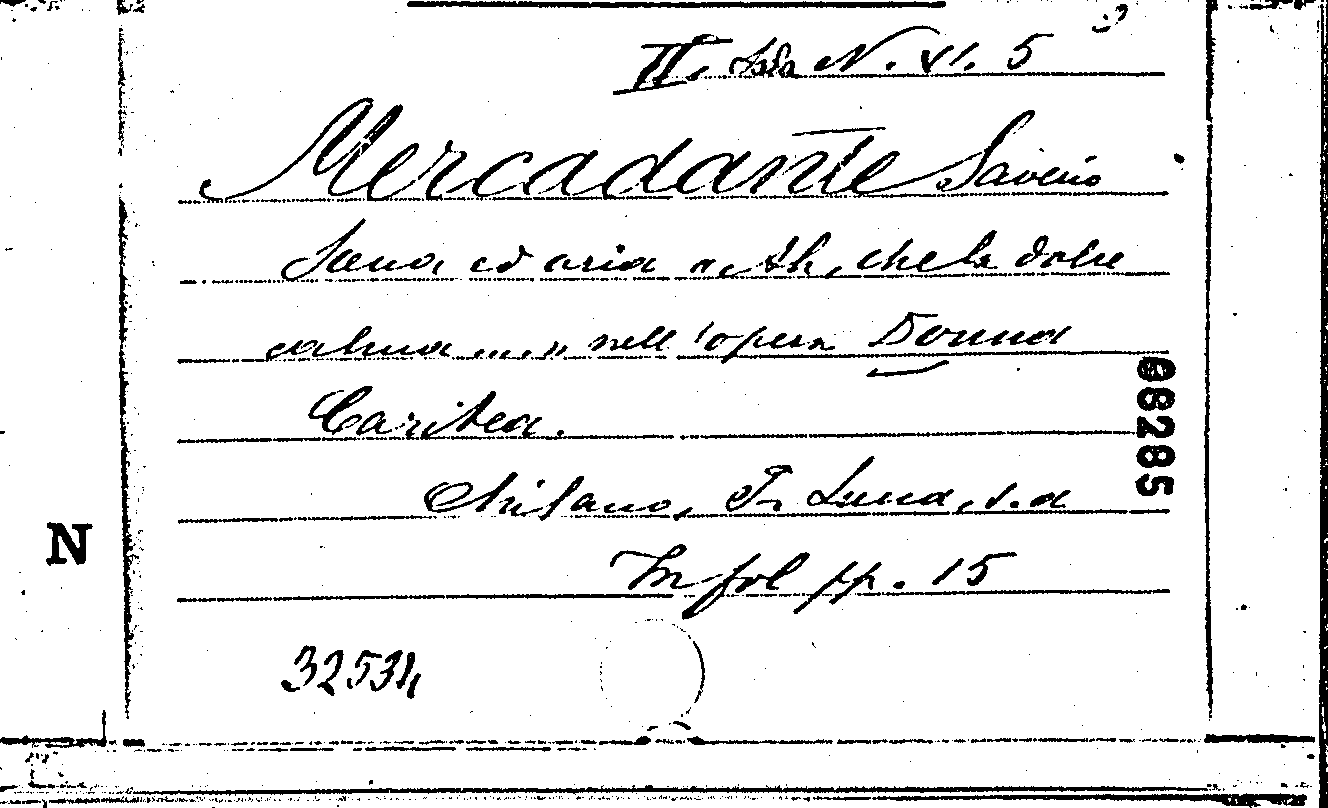 II. Sala N. VI. 5
Mercadante Saverio
Scena ed aria « Ah, che la dolce
calma .... » nell'opera Donna
Caritea.
08285
Milano, F. Lucca, s. d
N
In fol pp. 15
32534